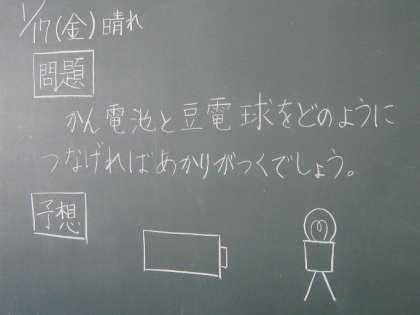 1/17(金)晴れ
問題
かん電池と豆電球をどのように
つなげればあかりがつくでしょう。
予想